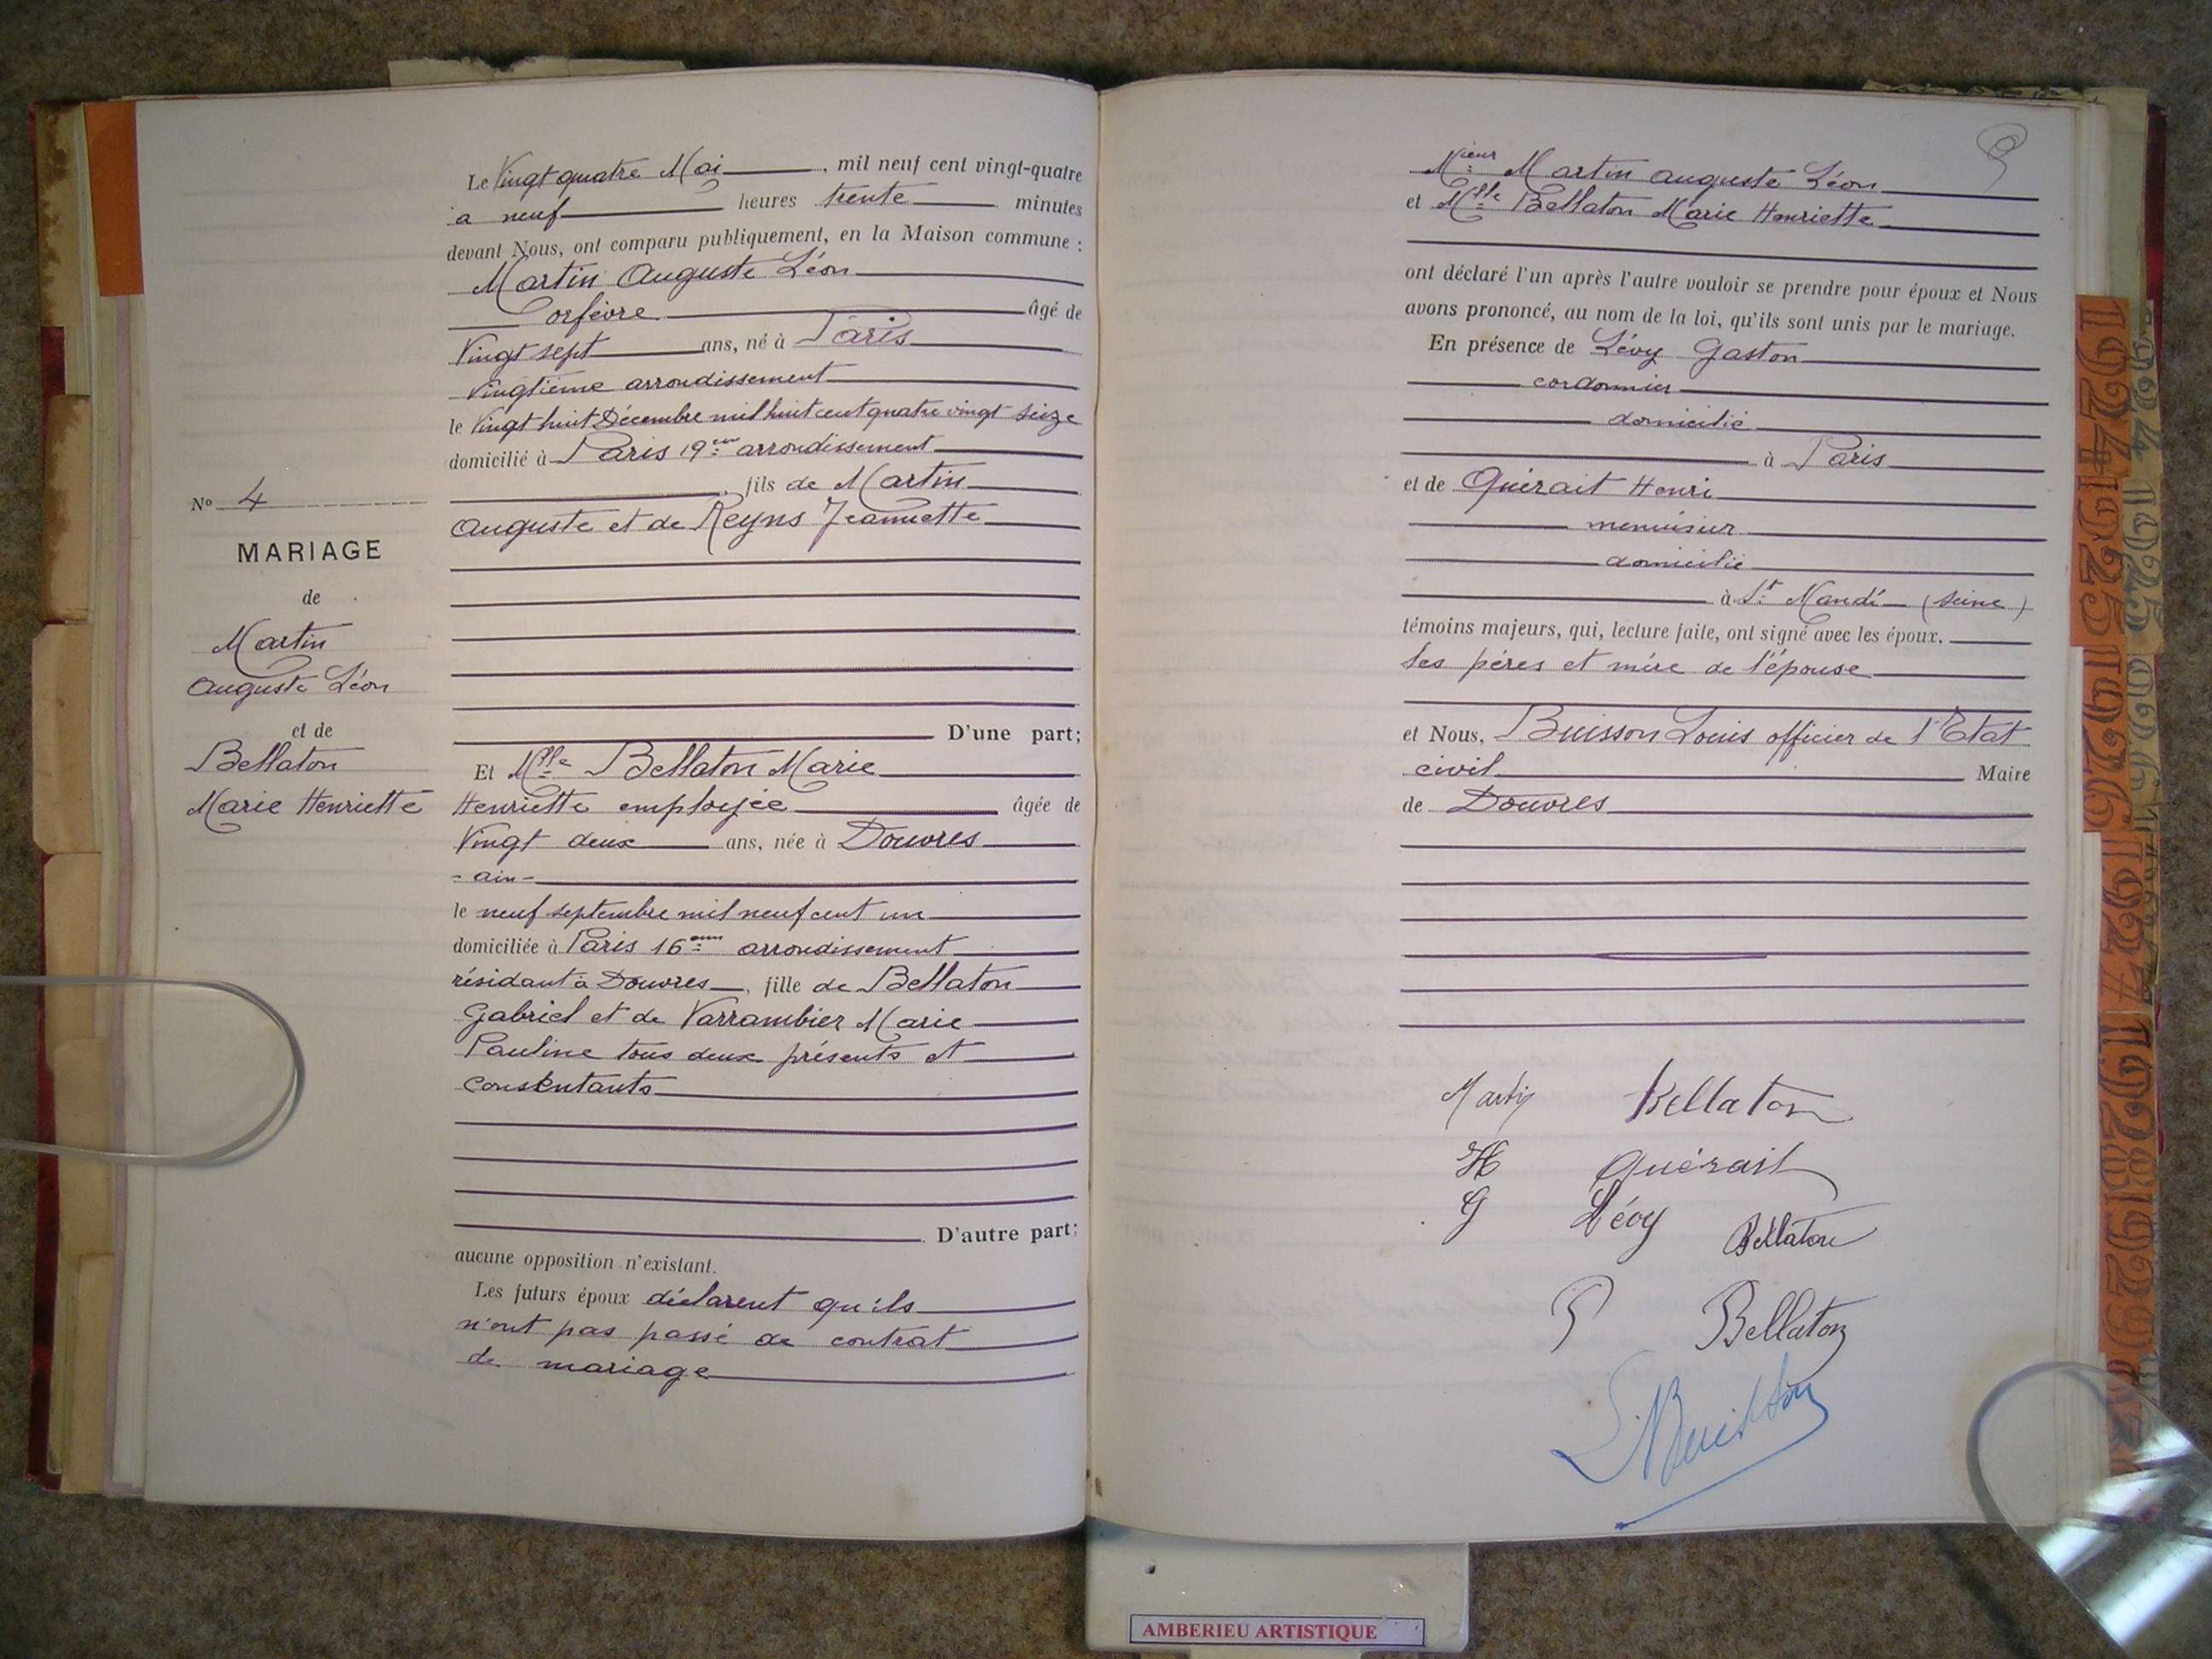 Le Vingt quatre Mai, mil neuf cent vingt-quatre
à neuf heures trente minutes
devant Nous, ont comparu publiquement, en la Maison commune :
Martin Auguste Léon
orfèvre âgé de
Vingt sept ans, né à Paris
vingtième arrondissement
le Vingt huit Décembre mil huit cent quatre vingt seize
domicilié à Paris 19em arrondissement
, fils de Martin
Auguste et de Reyns Jeannette
D'une part;
Et Mlle Bellaton Marie
Henriette employée âgée de
Vingt deux ans, née à Douvres
- ain -
le neuf septembre mil neuf cent un
domiciliée à Paris 16em arrondissement
résidant à Douvres, fille de Bellaton
Gabriel et de Varrambier Marie
Pauline tous deux présents et
consentants
D'autre part;
aucune opposition n'existant.
Les futurs époux déclarent qu'ils
n'ont pas passé de contrat
de mariage
No 4
MARIAGE
de
Martin
Auguste Léon
et de
Bellaton
Marie Henriette
9
Mieur Martin Auguste Léon
et Mlle Bellaton Marie Henriette
ont déclaré l'un après l'autre vouloir se prendre pour époux et Nous
avons prononcé, au nom de la loi, qu'ils sont unis par le mariage.
En présence de Lévy Gaston
cordonnier
domicilié
à Paris
et de Quérait Henri
menuisier
domicilié
à St Mandé (Seine)
témoins majeurs, qui, lecture faite, ont signé avec les époux.
les pères et mère de l'épouse
et Nous, Buisson Louis officier de l'Etat
civil Maire
de Douvres
Martin Bellaton
H Quérait
G Lévy Bellaton
P Bellaton
L Buisson
1924 1925 1926 1927 1928 1929
AMBERIEU ARTISTIQUE